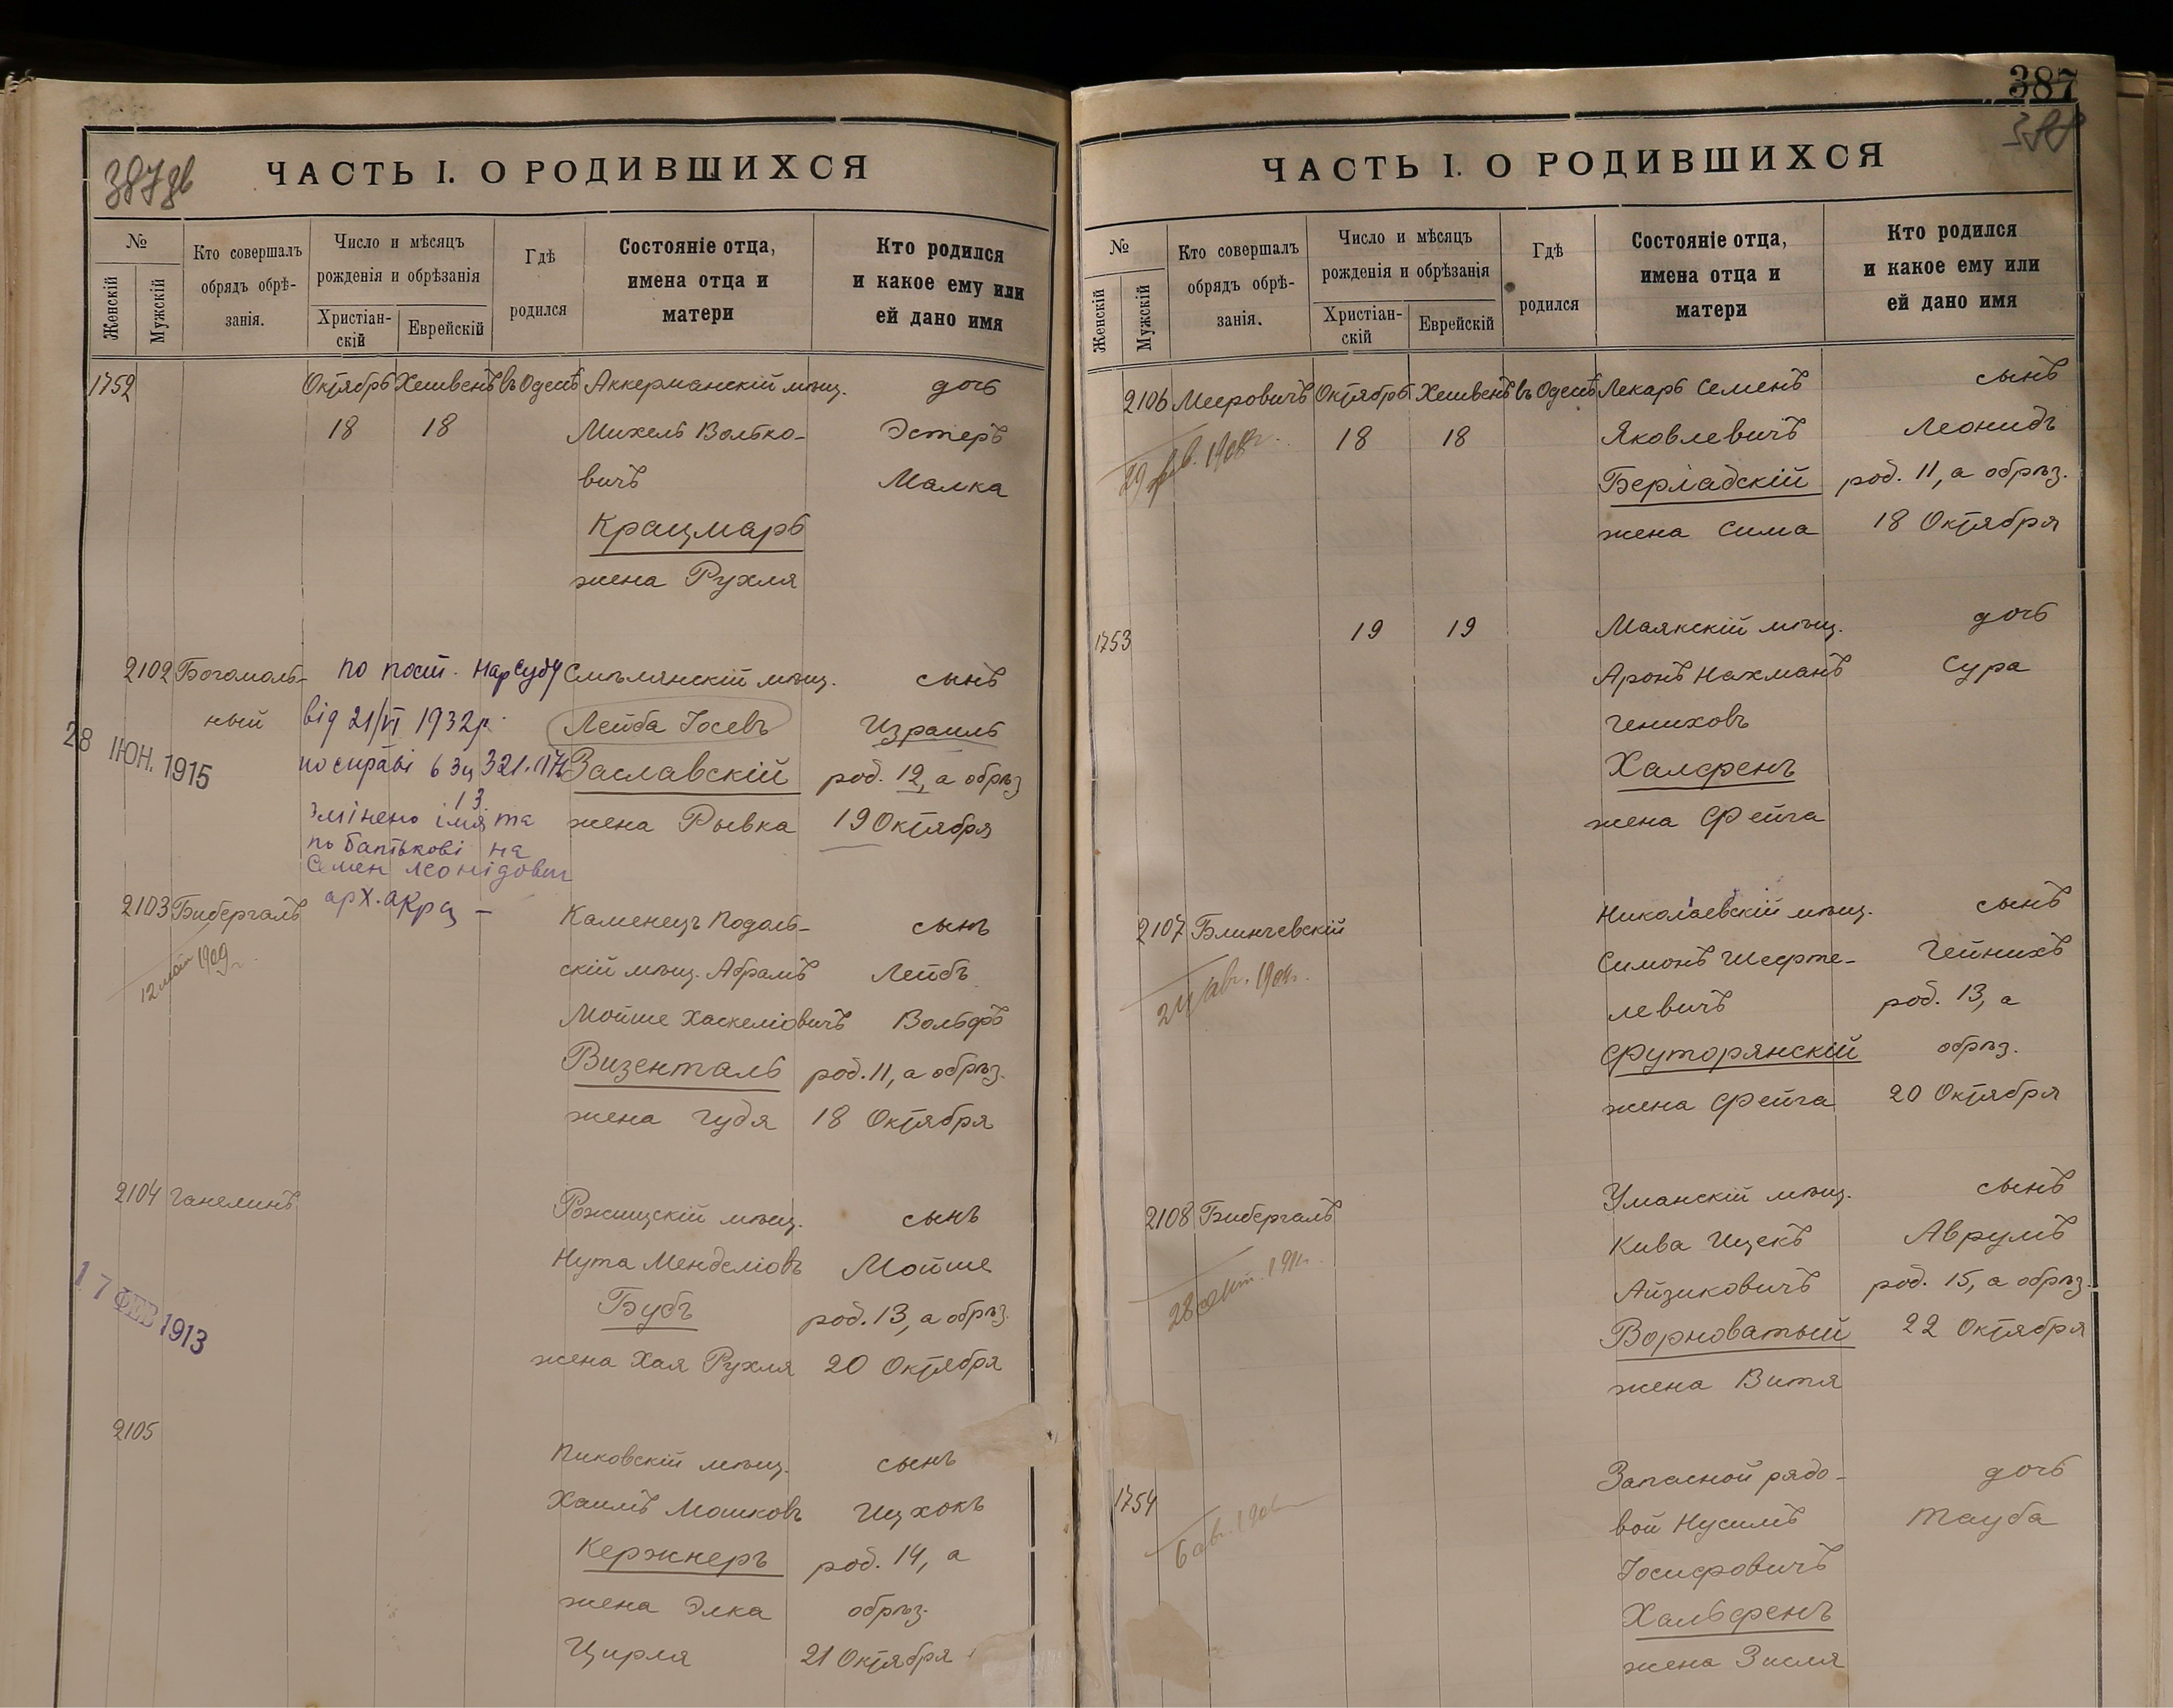 387 зв
ЧАСТЬ I. О РОДИВШИХСЯ
№
Женскій
Мужскій
Кто совершалъ
обрядъ обрѣ-
занія.
Число и мѣсяцъ
рожденія и обрѣзанія
Христіан-
скій
Еврейскій
Гдѣ
родился
Состояніе отца,
имена отца и
матери
Кто родился
и какое ему или
ей дано имя
1752 Октябрь Хешвенъ въ Одессѣ Аккерманскій мѣщ. дочь
18 18 Михель Волько- Эстеръ
вичъ Малка
Крацмаръ
жена Рухля
2102 Богомоль- по пост. Нарсуду Смѣлянскій мѣщ. сынъ
ный від 21/VI 1932р. Лейба Іосевъ Израиль
28 ІЮН. 1915
по справі Заславскій род. 12, а обрѣз
змінено імя та жена Рывка 19 Октября
по батькові на
Семен Леонідович
2103 Бибергалъ Каменецъ Подоль- сынъ
12 мая 1909 г. скій мѣщ. Абрамъ Лейбъ
Мойше Хаскеліовичъ Вольфъ
Визенталь род. 11, а обрѣз.
жена Гудя 18 Октября
2104 Ганелинъ Рожищскій мѣщ. сынъ
Нута Менделіовъ Мойше
17 ФЕВ 1913
Бубъ род. 13, а обрѣз.
жена Хая Рухля 20 Октября
2105
Пиковскій мѣщ. сынъ
Хаимъ Мошковъ Ицхокъ
Кержнеръ род. 14, а
жена Элка обрѣз.
Цирля 21 Октября
387
388
ЧАСТЬ I. О РОДИВШИХСЯ
№
Женскій
Мужскій
Кто совершалъ
обрядъ обрѣ-
занія.
Число и мѣсяцъ
рожденія и обрѣзанія
Христіан-
скій
Еврейскій
Гдѣ
родился
Состояніе отца,
имена отца и
матери
Кто родился
и какое ему или
ей дано имя
2106 Мееровичъ Октябрь Хешвенъ въ Одессѣ Лекарь Семенъ сынъ
18 18 Яковлевичъ Леонидъ
Берладскій род. 11, а обрѣз.
жена Сима 18 Октября
1753 19 19 Маякскій мѣщ. дочь
Аронъ Нахманъ Сура
Гениховъ
Халфенъ
жена Фейга
2107 Блинчевскій Николаевскій мѣщ. сынъ
Симонъ Шефте- Гейнихъ
левичъ род. 13, а
Футорянскій обрѣз.
жена Фейга 20 Октября
2108 Бибергалъ Уманскій мѣщ. сынъ
Кива Ицекъ Аврумъ
Айзиковичъ род. 15, а обрѣз.
Ворноватый 22 Октября
жена Витя
1754 Запасной рядо- дочь
вой Нусимъ Тауба
Іосифовичъ
Хальфенъ
жена Зисля